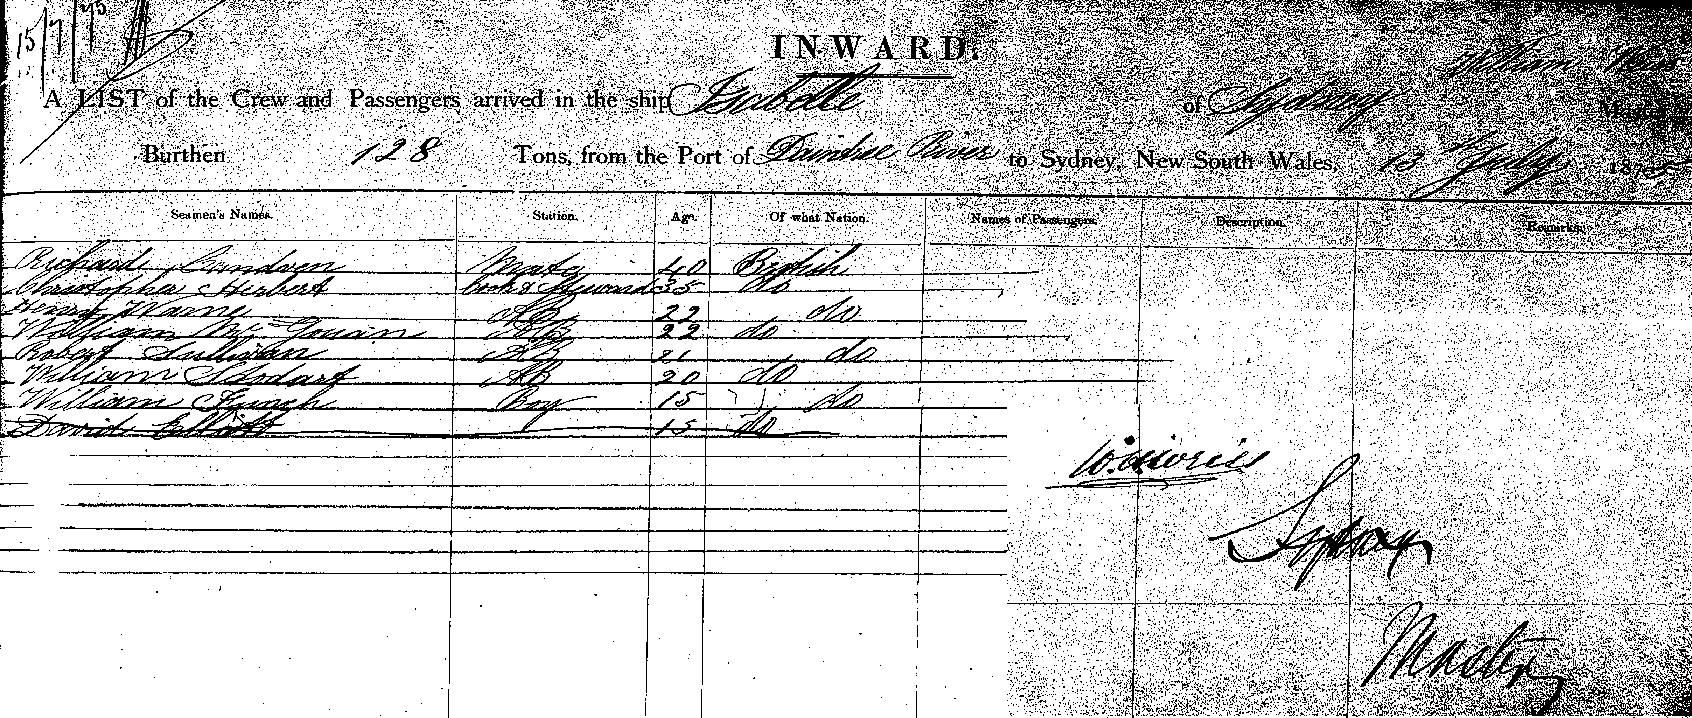 15/7/75
INWARD.
William
A LIST of the Crew and Passengers arrived in the ship Isabella of Sydney
Burthen 128 Tons, from the Port of Daintree River to Sydney, New South Wales, 13 July 1875
Seamen's Names. Station. Age. Of what Nation. Names of Passengers. Description. Remarks.
Richard Mate 40 British
Christopher Herbert Cook & Steward 35 do
Henry Warne AB 22 do
William McGowan AB 22 do
Robert Sullivan AB 21 do
William Stodart AB 20 do
William Funch Boy 15 do
David Elliott 15 do
Sydney
Master